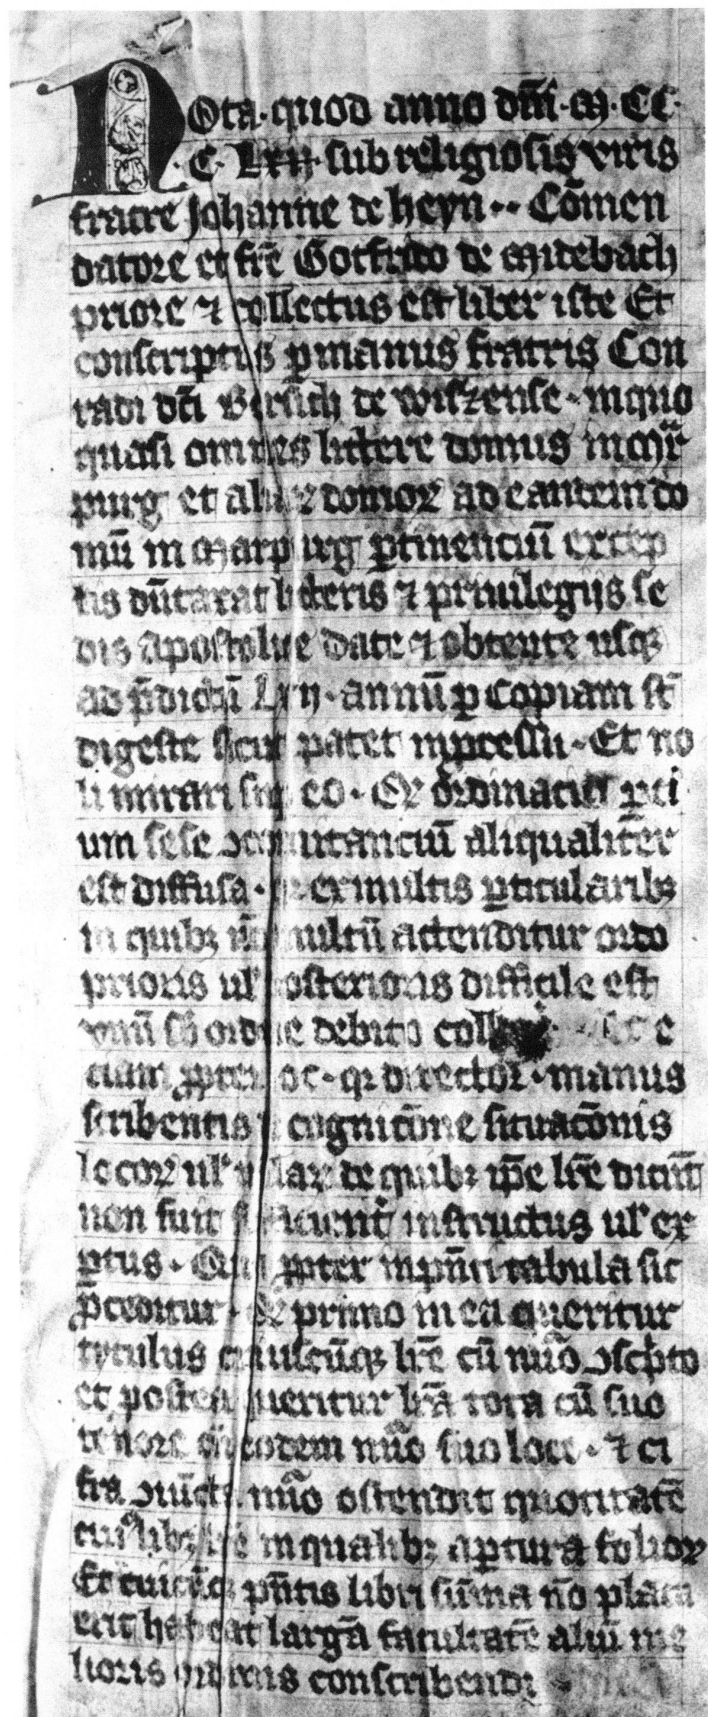 Nota · quod anno dm̄i · M · CC ·
· C · Lxii · sub religiosis viris
fratre Johanne de heyn ·· Com̄en
datore et fr̄e Gotfrido de Midebach
priore ⁊ collectus est liber iste Et
conscriptus ꝑ manus fratris Con
radi dc̄i de wiszense · in quo
quasi omnes littere domus in Mar
purg et aliaꝝ domoꝝ ad eandem do
mū in Marpurg ꝑtinenciū excep
tis dūtaxat litteris ⁊ priuilegijs se
dis apostolice date ⁊ obtente usqꝫ
ad p̄dictū Lxij · annū ꝑ Copiam st̄
digeste sicut patet in ꝓcessu · Et no
li mirari suꝑ eo · Qꝛ ordinaciō ꝑci
um sese ꝯcomitanciū aliqualiter
est diffusa · qꝛ ex multis ꝑticularibꝫ
in quibꝫ nō multū attenditur ordo
prioris ul̓ posterioris difficile est
vnū sb̄ ordine debito
ciam ꝓpter hoc · qꝛ director · manus
scribentis cognicōne situacōnis
locoꝝ ul̓ villaꝝ de quibꝫ ip̄e lr̄e dicūt
non fuit sufficient̓ instructus ul̓ ex
ꝑtus · Qua ꝓpter in pn̄ti tabula sic
ꝓceditur · Qꝛ primo in ea queritur
tytulus cuiuscūqꝫ lr̄e cū nūo ꝯscp̄to
et postea queritur lr̄a tota cū suo
tenore cū eodem nūo suo loco · ⁊ ci
fra ꝯiūcta nūo ostendit quotitatē
cuiꝰlibꝫ lr̄e in qualibꝫ aꝑtura folioꝝ
Et cuicūqꝫ pn̄tis libri sum̄a nō placu
erit habeat largā facultatē aliū me
lioris ordinis conscribendi